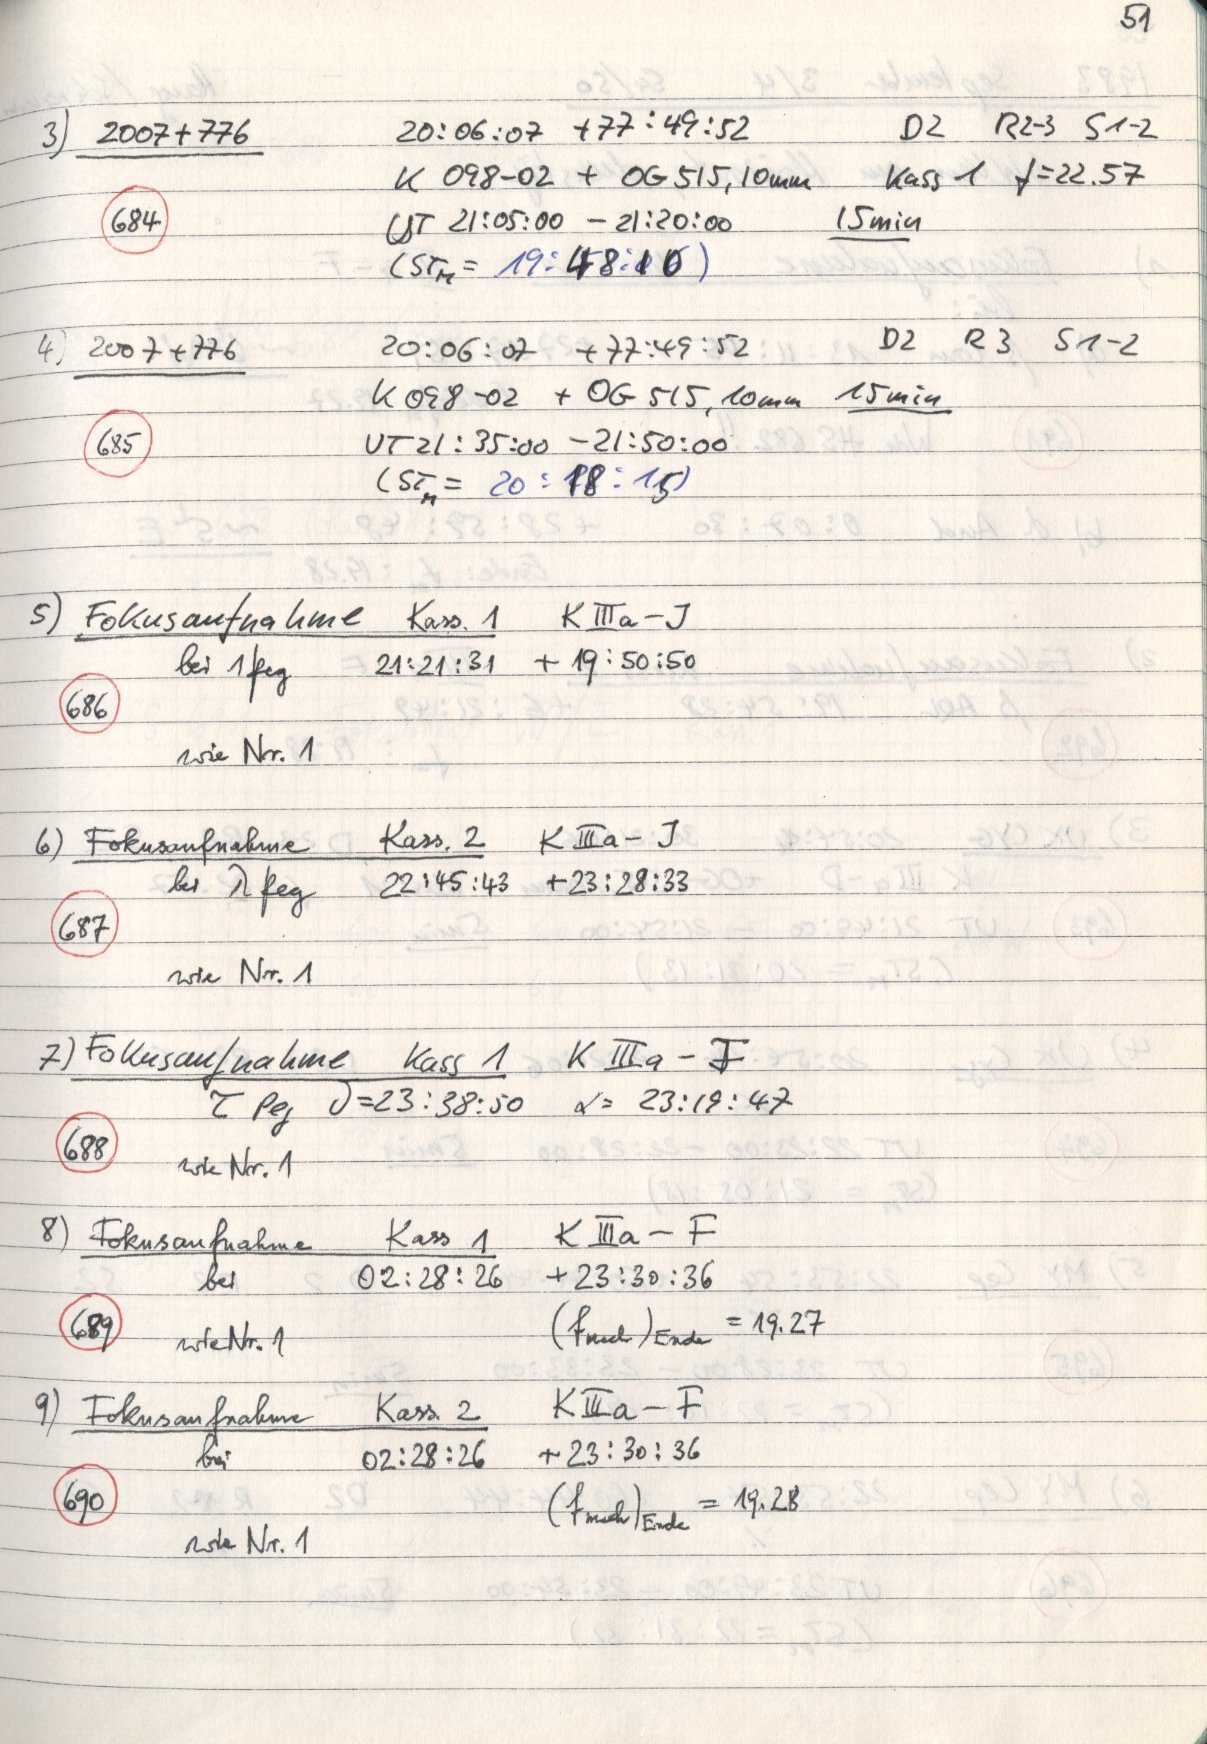 51
3) 2007+776 20:06:07 +77:49:52 D2 R2-3 S1-2
K 098-02 + OG 515, 10mm Kass 1 f=22.57
684 UT 21:05:00 - 21:20:00 15min
(ST_M = 19:48:16)
4) 2007+776 20:06:07 +77:49:52 D2 R3 S1-2
K 098-02 + OG 515, 10mm 15min
685 UT 21:35:00 - 21:50:00
(ST_M = 20:18:15)
5) Fokusaufnahme Kass. 1 K IIIa-J
bei 1 Peg 21:21:31 +19:50:50
686
wie Nr. 1
6) Fokusaufnahme Kass. 2 K IIIa-J
bei λ Peg 22:45:43 +23:28:33
687
wie Nr. 1
7) Fokusaufnahme Kass 1 K IIIa-F
τ Peg δ=23:38:50 α= 23:19:47
688
wie Nr. 1
8) Fokusaufnahme Kass 1 K IIIa-F
bei 02:28:26 +23:30:36
689 wie Nr. 1 (f_mech)_Ende = 19.27
9) Fokusaufnahme Kass. 2 K IIIa-F
bei 02:28:26 +23:30:36
690 (f_mech)_Ende = 19.28
wie Nr. 1